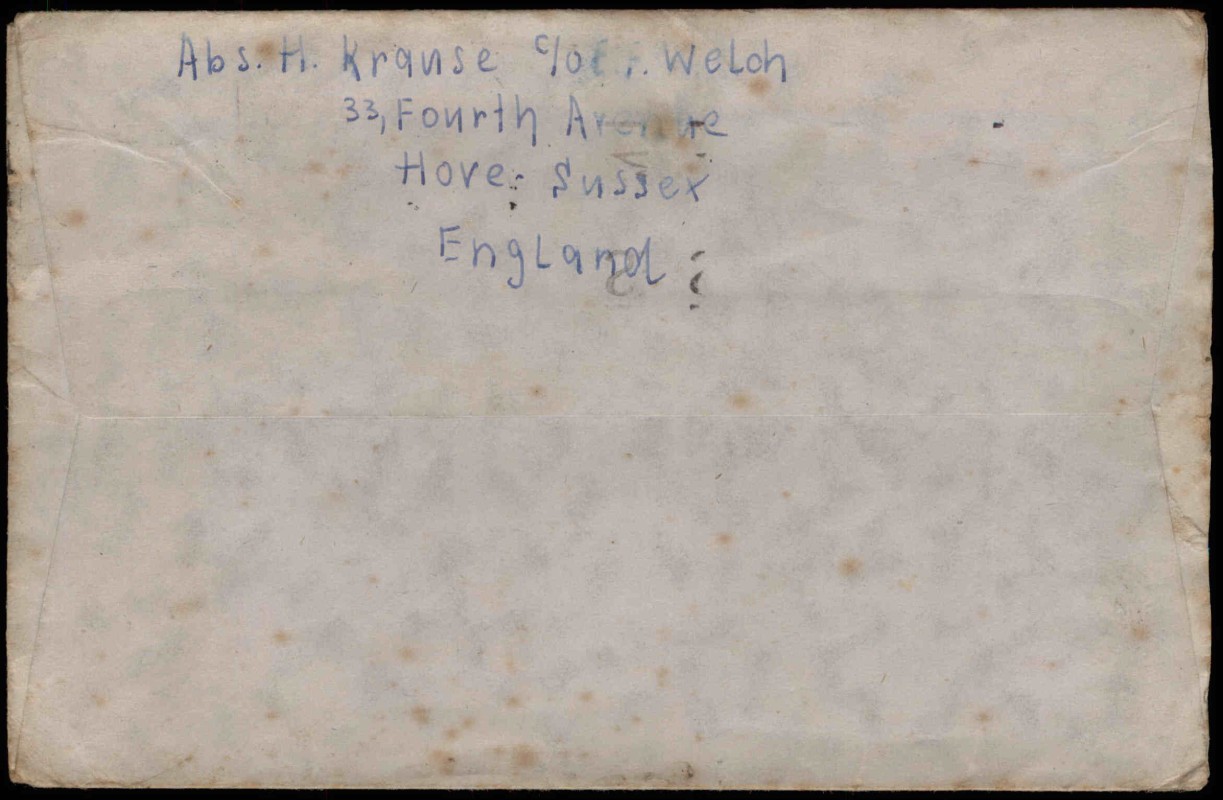 Abs. H. Krause c/o Welch
33, Fourth Avenue
Hove. Sussex
England